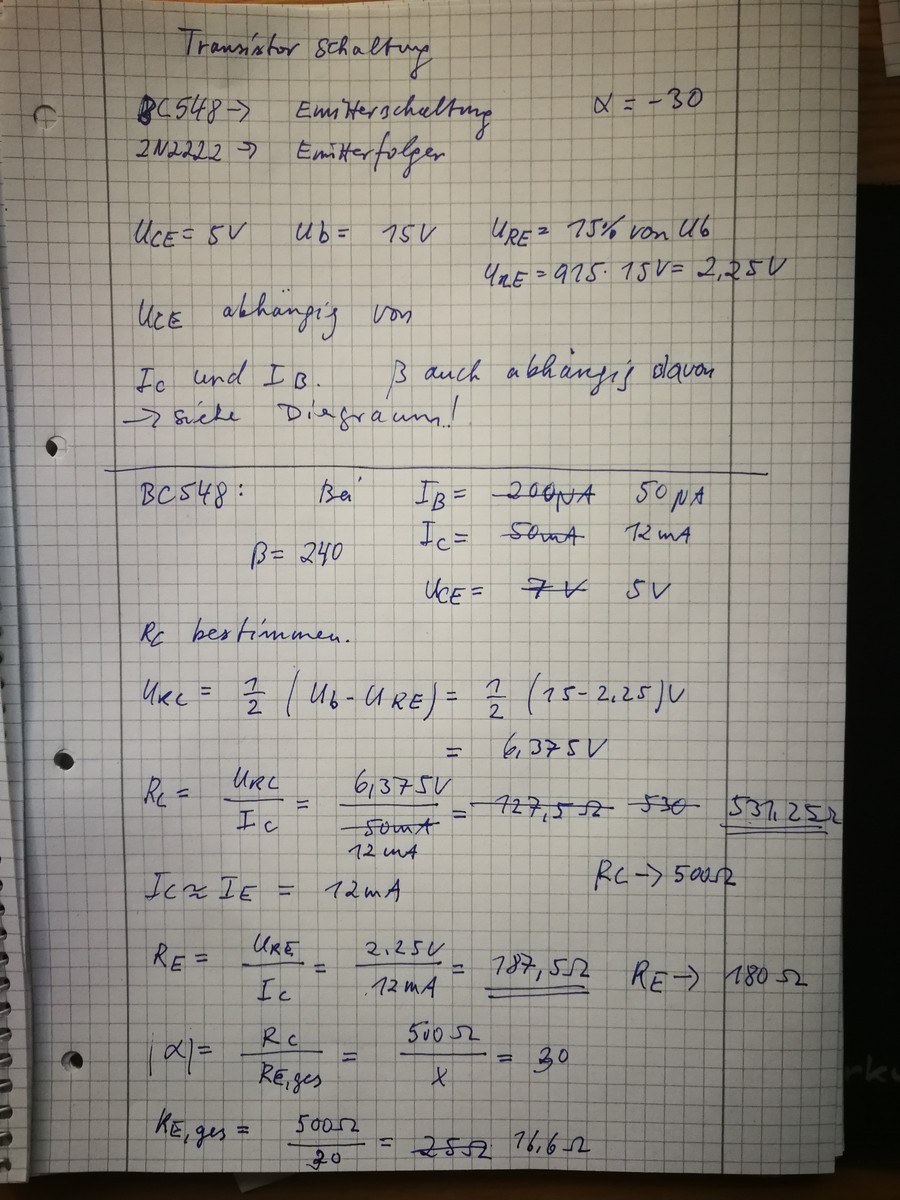 Transistor Schaltung
BC548 → Emitterschaltung α = -30
2N2222 → Emitterfolger
UCE = 5V Ub = 15V URE = 15% von Ub
URE = 0,15 · 15V = 2,25V
UCE abhängig von
IC und IB. β auch abhängig davon
→ siehe Diagramm!
BC548: Bei IB = 200µA 50µA
IC = 50mA 12mA
β = 240
UCE = 7V 5V
RC bestimmen.
URC = 1/2 (Ub - URE) = 1/2 (15 - 2,25)V
= 6,375V
RC = URC/IC = 6,375V/50mA = 127,5Ω 530 531,25Ω
12mA
RC → 500Ω
IC ≈ IE = 12mA
RE = URE/IC = 2,25V/12mA = 187,5Ω RE → 180Ω
|α| = RC/RE,ges = 500Ω/x = 30
RE,ges = 500Ω/30 = 25Ω 16,6Ω